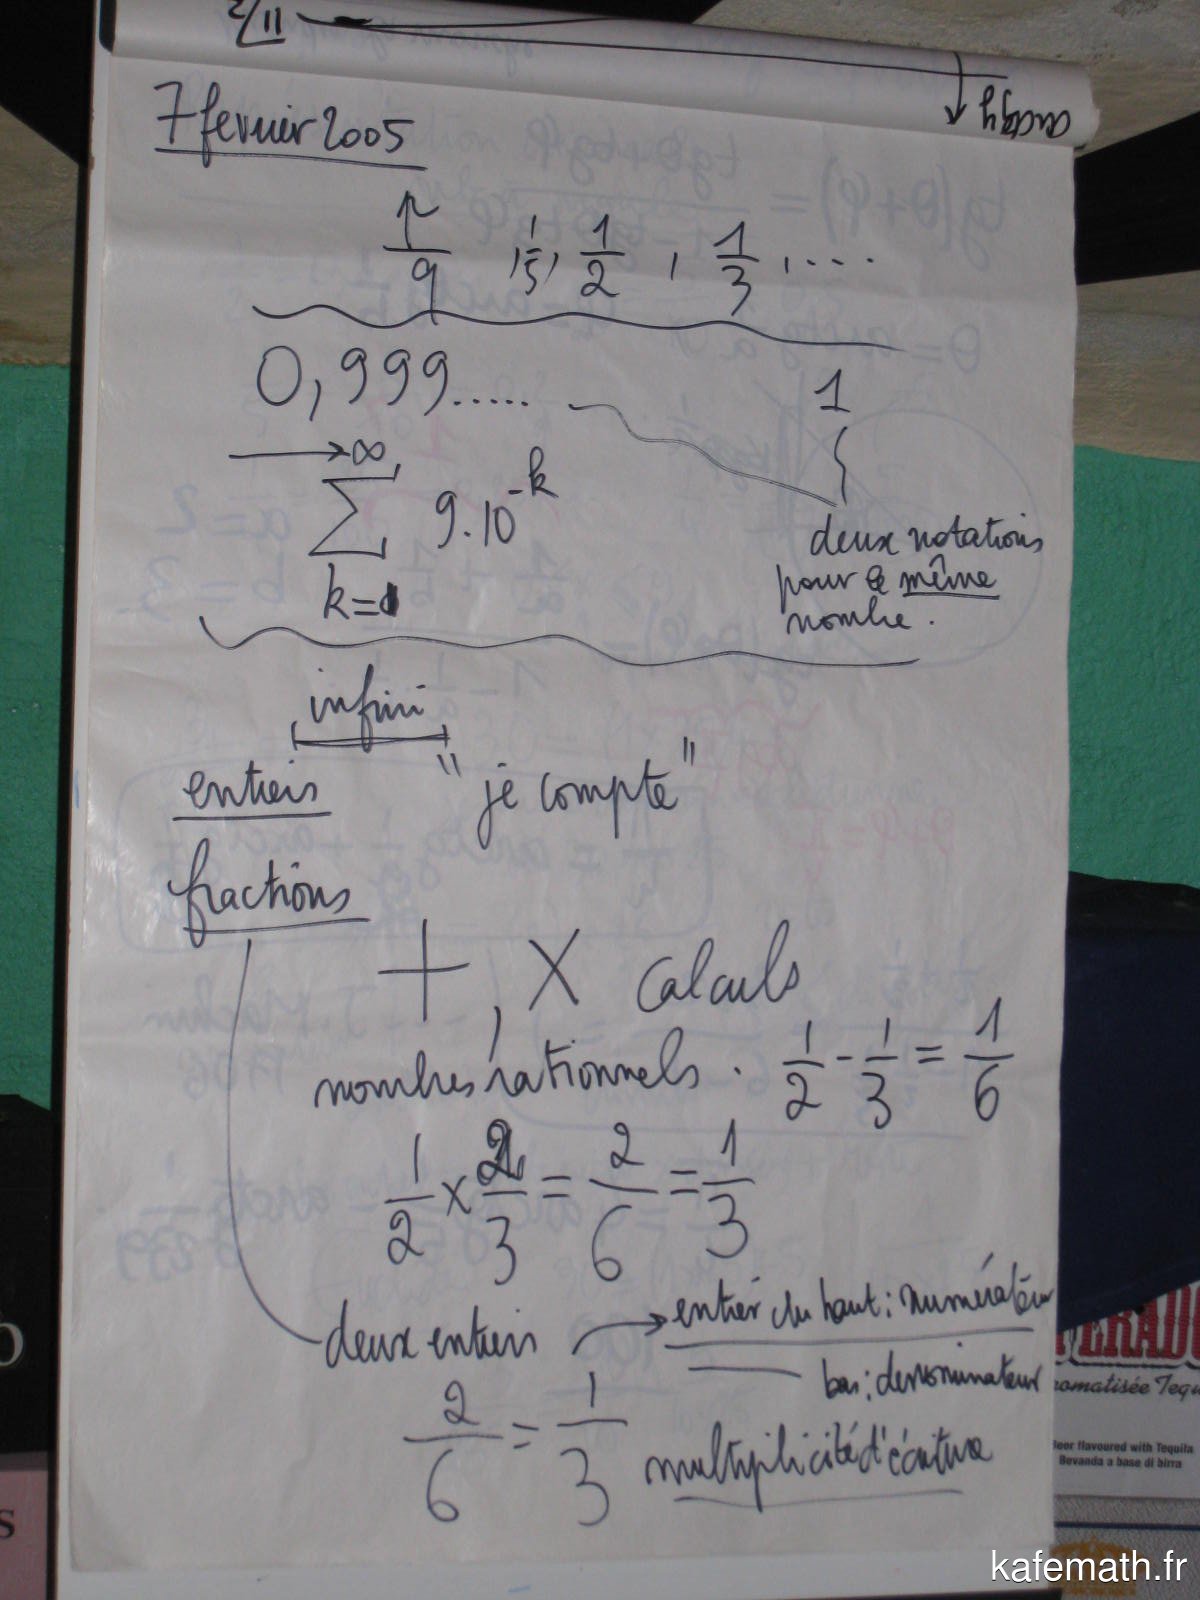 2/11
7 fevrier 2005
p/q , 1/5, 1/2 , 1/3 , ....
0,999..... 1
→∞
∑ 9.10^-k
k=1
deux notations
pour le même
nombre.
infini
entiers "je compte"
fractions
+, X calculs
nombres rationnels . 1/2 - 1/3 = 1/6
1/2 x 2/3 = 2/6 = 1/3
deux entiers → entier du haut : numérateur
bas : denominateur
2/6 = 1/3 multiplicité d'écriture
ERADO
romatisée Tequ
Beer flavoured with Tequila
Bevanda a base di birra
kafemath.fr